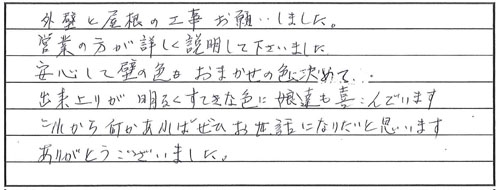 外壁と屋根の工事お願いしました。
営業の方が詳しく説明して下さいました
安心して壁の色をおまかせの色に決めて...
出来上りが明るくすてきな色に娘達も喜こんでいます
これから何かあればぜひお世話になりたいと思います
ありがとうございました。